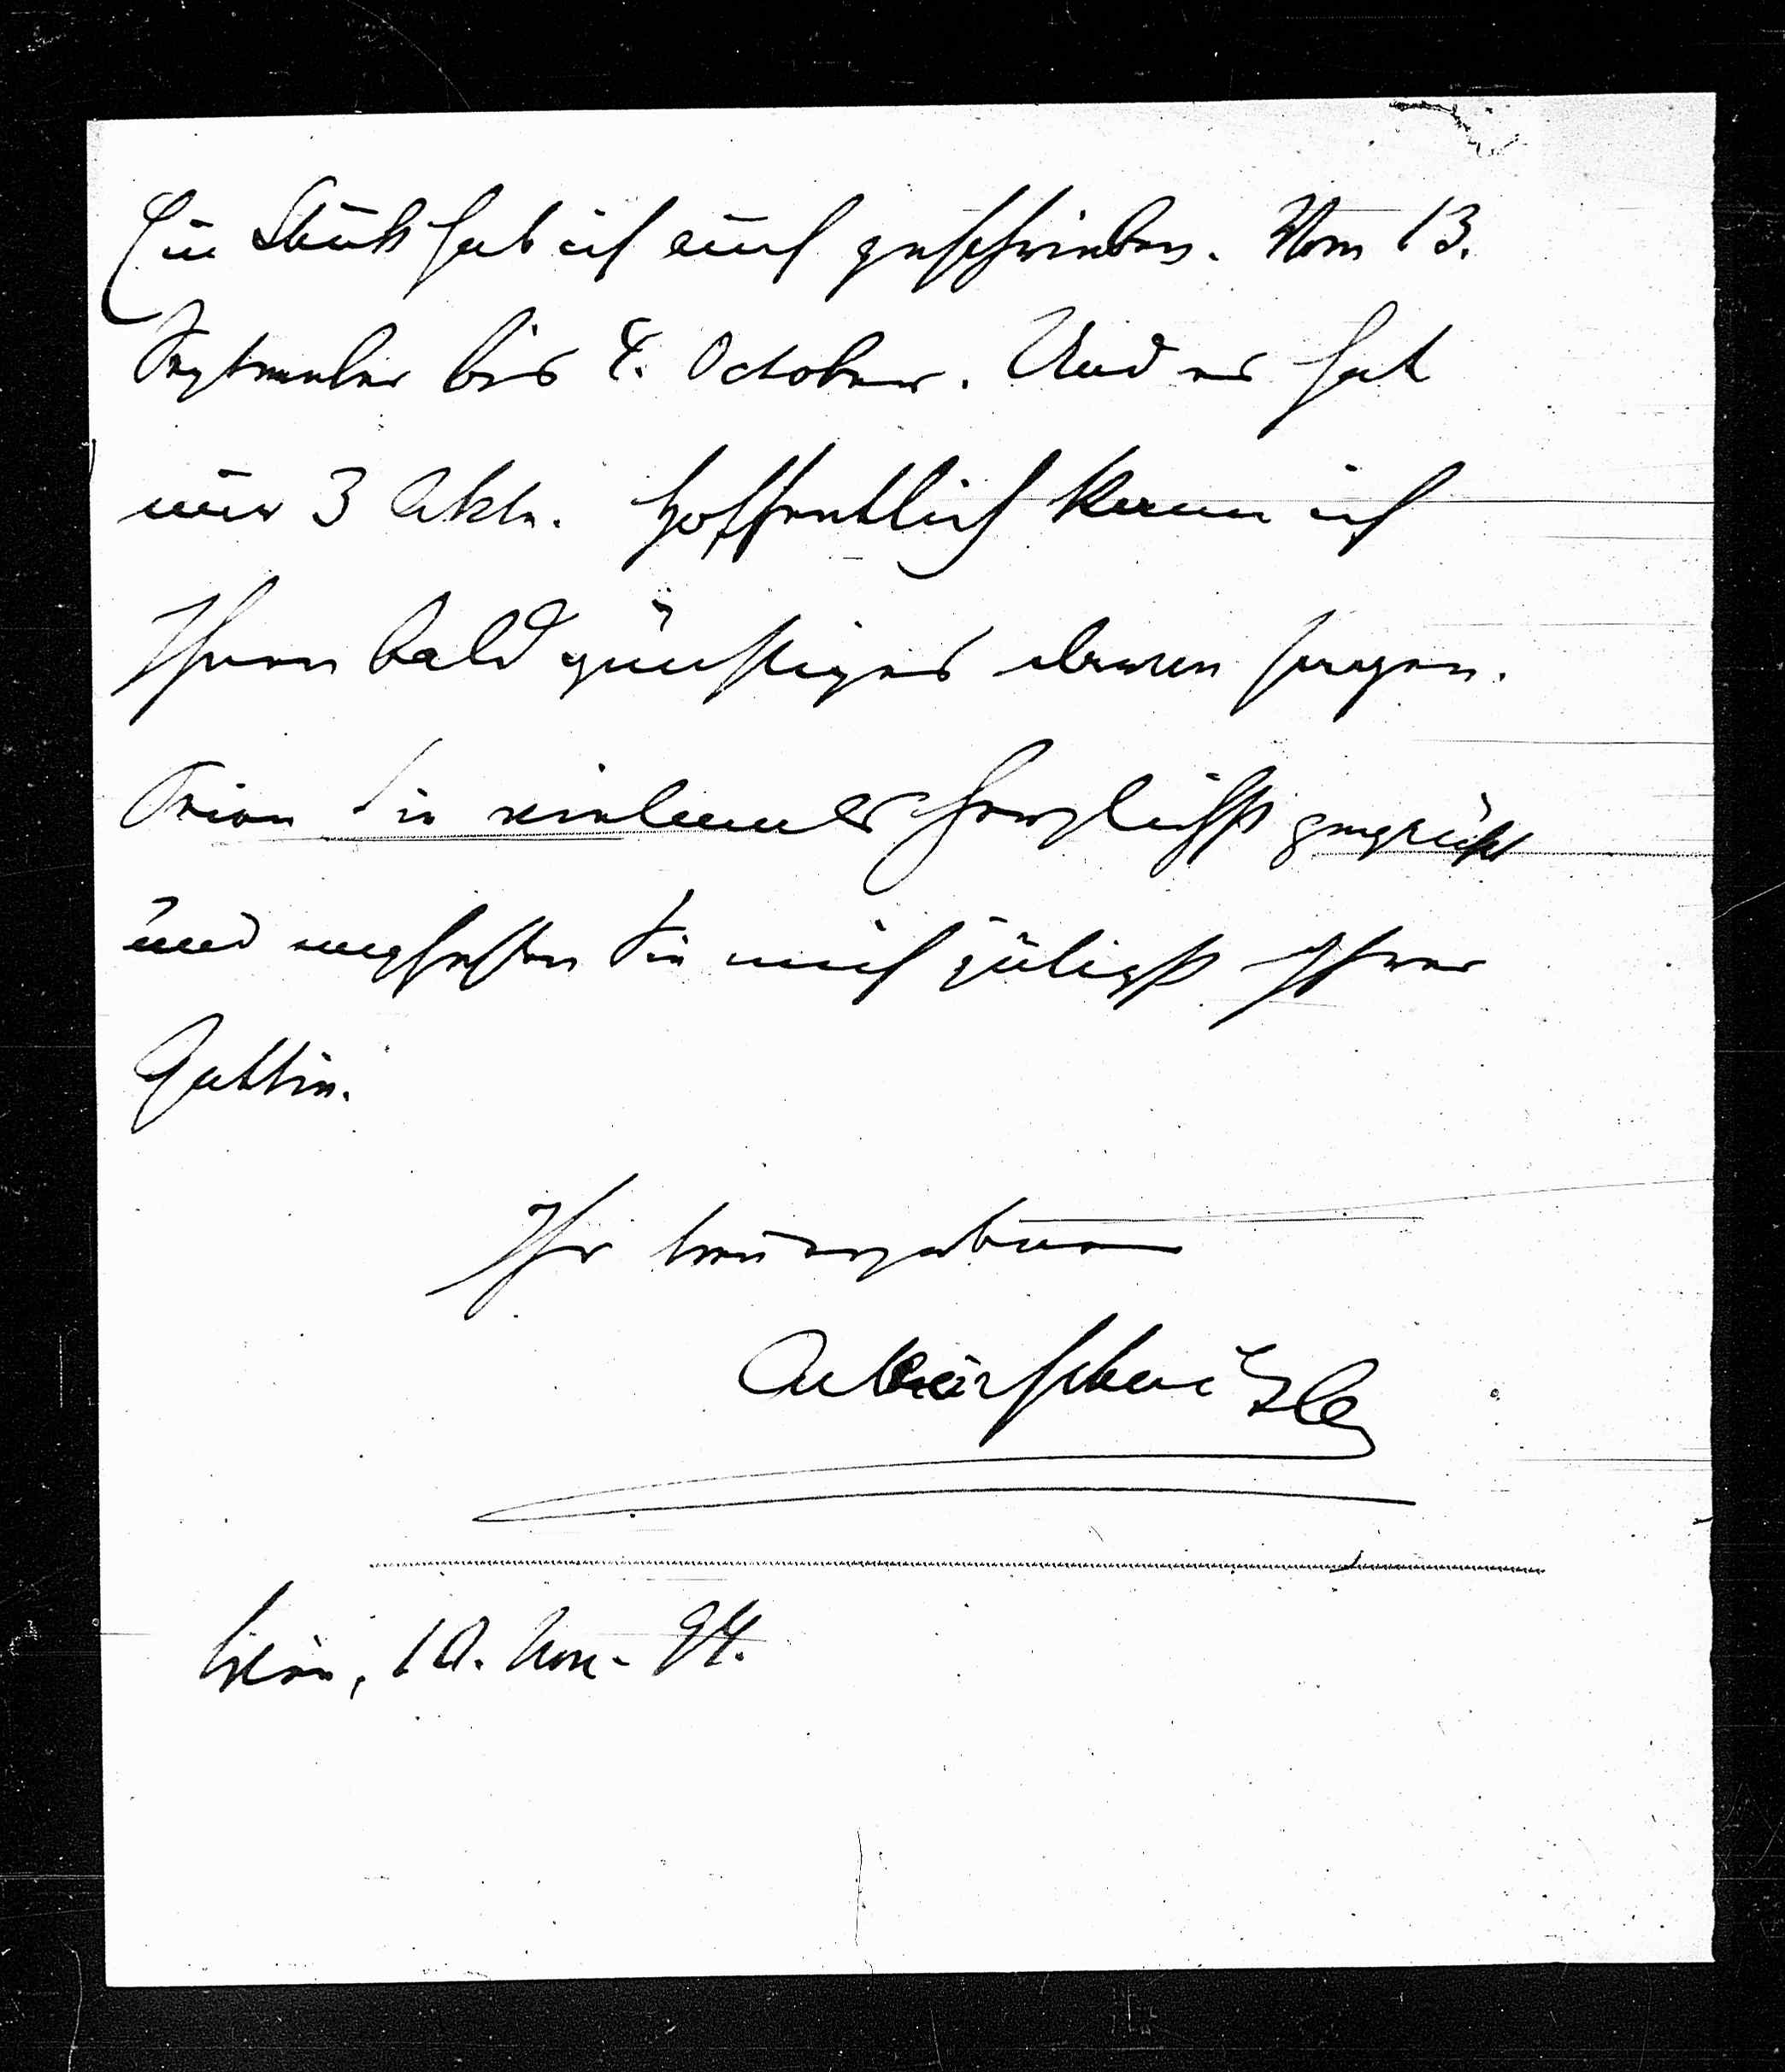 Ein Stück hab ich auch geschrieben. Vom 13.
September bis 4. October. Und es hat
nur 3 Akte. Hoffentlich kann ich
Ihnen bald günstiges davon sagen.
Seien Sie vielmals herzlichst gegrüßt
und empfehlen Sie mich gütigst Ihrer
Gattin.
Ihr treu ergebener
ArthurSchnitzler
Wien, 10. Nov. 94.